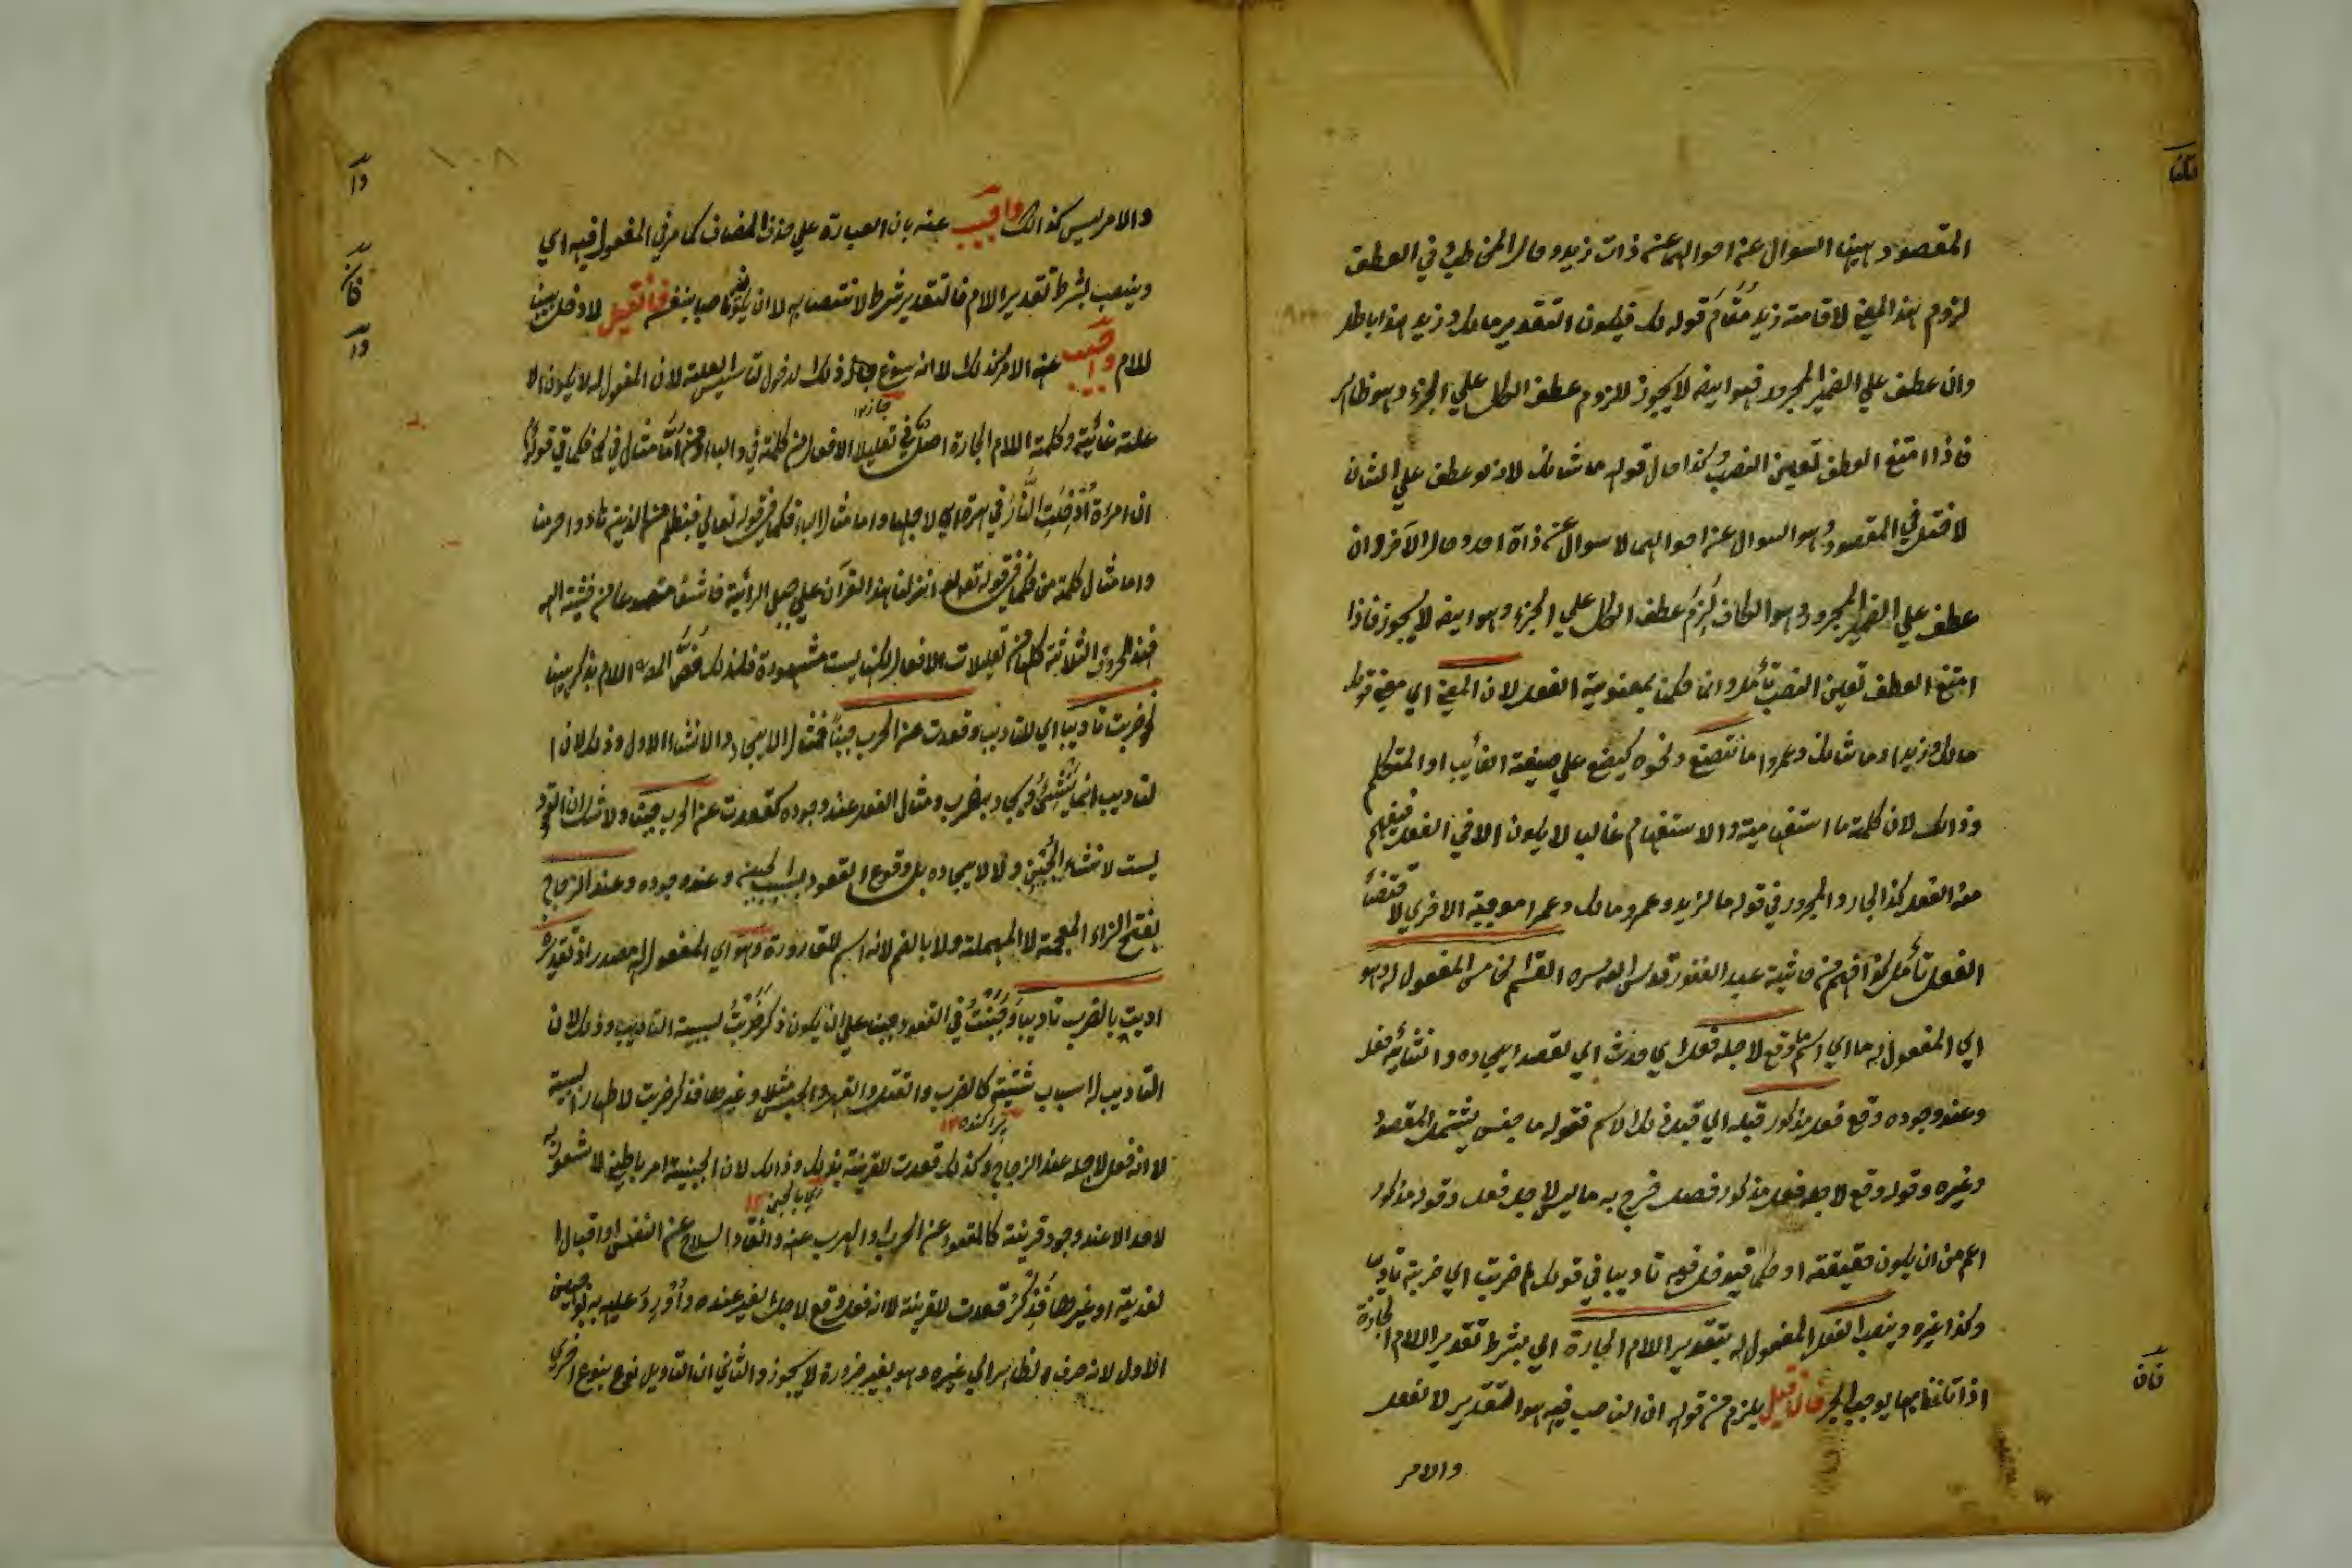 المقصود ههنا السوال عن احوالهما عن ذات زيد وحال المخاطب في العطف
لزوم هذا المعنى لاقامته زيد مُقَام قوله لك فيكون التقدير مالك وزيد هذا باطل
وان عطف علي الضمير المجرور فهو ايضا لا يجوز للزوم عطف الكل علي الجزء وهو ظاهر
فاذا امتنع العطف تعين النصب وكذا حال قوله ما شانك لانه لو عطف علي الشان
لاختل في المقصود وهو السوال عن احوالهما لا سوال عن ذاة احد وحال الآخر وان
عطف علي الضمير المجرور وهو الكاف لزم عطف الكل علي الجزء وهو ايضا لا يجوز فاذا
امتنع العطف تعين النصب تأمل وانما حكمنا بمعنوية الفعل لان المعنى اي معنى قولك
مالك وزيدا وما شانك وعمروا ما تصنع ونحوه كيصنع علي صيغة الغائب او المتكلم
وذالك لان كلمة ما استفهامية والاستفهام غالبا لا يكون الا في الفعل فيفهم
منه الفعل كذا الجار والمجرور في قوله ما لزيد وعمرو مالك وعمرا
الفعل تأمل كذا افهم من حاشية عبد الغفور قدس الله سره القسم الخامس المفعول له وهو
اي المفعول له ما اي اسم ما وقع لاجله فعل اي حدث اي لقصد ايجاده وانشائه فعل
وعند وجوده وقع فعل مذكور قبله اي قبل ذلك الاسم فقوله ما جنس يشتمل المقصود
وغيره وقوله وقع لاجله فعل مذكور فصل خرج به ما ليس لاجله فعل وقوله مذكور
اعم من ان يكون حقيقة او حكما تاديبا في قولك لم ضربت اي ضربته تاديبا
وكذا غيره وينصب الفعل المفعول له بتقدير اللام الجارة اي بشرط تقدير اللام الجارة
اذا تلفظ بها يوجب الجر فان قيل يلزم من قوله ان الناصب فيه هو التقدير لا الفعل
والامر
فان
١٠٨
والامر ليس كذالك واجيب عنه بان العبارة علي حذف المضاف كما مر في المفعول فيه اي
وينصب بشرط تقدير اللام فالتقدير شرط لانتصابه لا ان يكون ناصبا بنفسه فان قيل لا دخل ههنا
للام واجيب عنه الامر كذلك لا انه لدخول العلة لان المفعول له لا يكون الا
علة غائية وكلمة اللام الجارة اصل في تعليلات الافعال من كلمة في والباء ومن امّا مثال في كما في قوله
ان امرءة اُدْخِلَتِ النّارَ في هرة اي لاجلها واما مثال الباء فكما في قوله تعالي فبظلم من الذين هادوا حرمنا
واما مثال كلمة من فكما في قوله تعالى انزلنا هذا القرآن علي جبل الرأيته خاشعا متصدعا من خشية الله
فهذه الحروف الثلاثة كلها من تعليلات الافعال لكنها ليست مشهورة فلذلك خصَّ المصـ اللام بذكر ههنا
نحو ضربت تاديبا اي للتاديب وقعدت عن الحرب جبنًا فمثال الايجاد والانشاء الاول وذلك لان ا
لتاديب انما يُنْشَئُ ويوجد بضرب ومثال الفعل عند وجوده كقعدت عن الحرب جبنا ولا شك ان القعود
ليست لانشاء الجُبْنِ ولا لايجاده بل وقوع القعود بسبب الجبن وعند وجوده وعند الزجاج
بفتح الزاء المعجمة لا المهملة ولا بالضم لانه اسم للقارورة وهو اي المفعول له مصدر اذ تقديره
ادبت بالضرب تاديبا وجَبُنْتُ في القعود جبنا علي ان يكون ذكر ضَرَبْتُ لسببية التاديب وذلك لان
التاديب له اسباب شتيتة كالضرب والقتل والقهر والحبس مثلا وغيرها فذكر ضربت لاظهار لسببية
پراكنده ١٢
لا انه فعل لاجله عند الزجاج وكذلك قعدت للقرينة بذلك وذالك لان الجبنية امر باطني لا شعور به
اي بالجبن ١٢
لاحد الا عند وجود قرينة كالقعود عن الحرب والهرب عنه والقاء السلاح عن النفس او اقبال ا
لفدية او غيرها فَذُكِرَ قعدت للقرينة لا انه فعل وقع لاجله لفعل عنده واُوْرِدَ عليه بوجهين
الاول لانه صرف الظاهر الي غيره وهو بغير ضرورة لا يجوز والثاني ان التاويل نوع بنوع اخرى